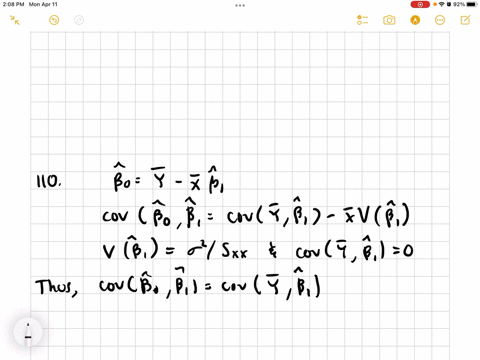 2:08 PM Mon Apr 11
92%
110. β̂₀ = Ȳ - x̄ β̂₁
cov (β̂₀, β̂₁ = cov(Ȳ, β̂₁) - x̄ V(β̂₁)
V(β̂₁) = σ²/Sxx & cov(Ȳ, β̂₁) = 0
Thus, cov(β̂₀, β̂₁) = cov(Ȳ, β̂₁)